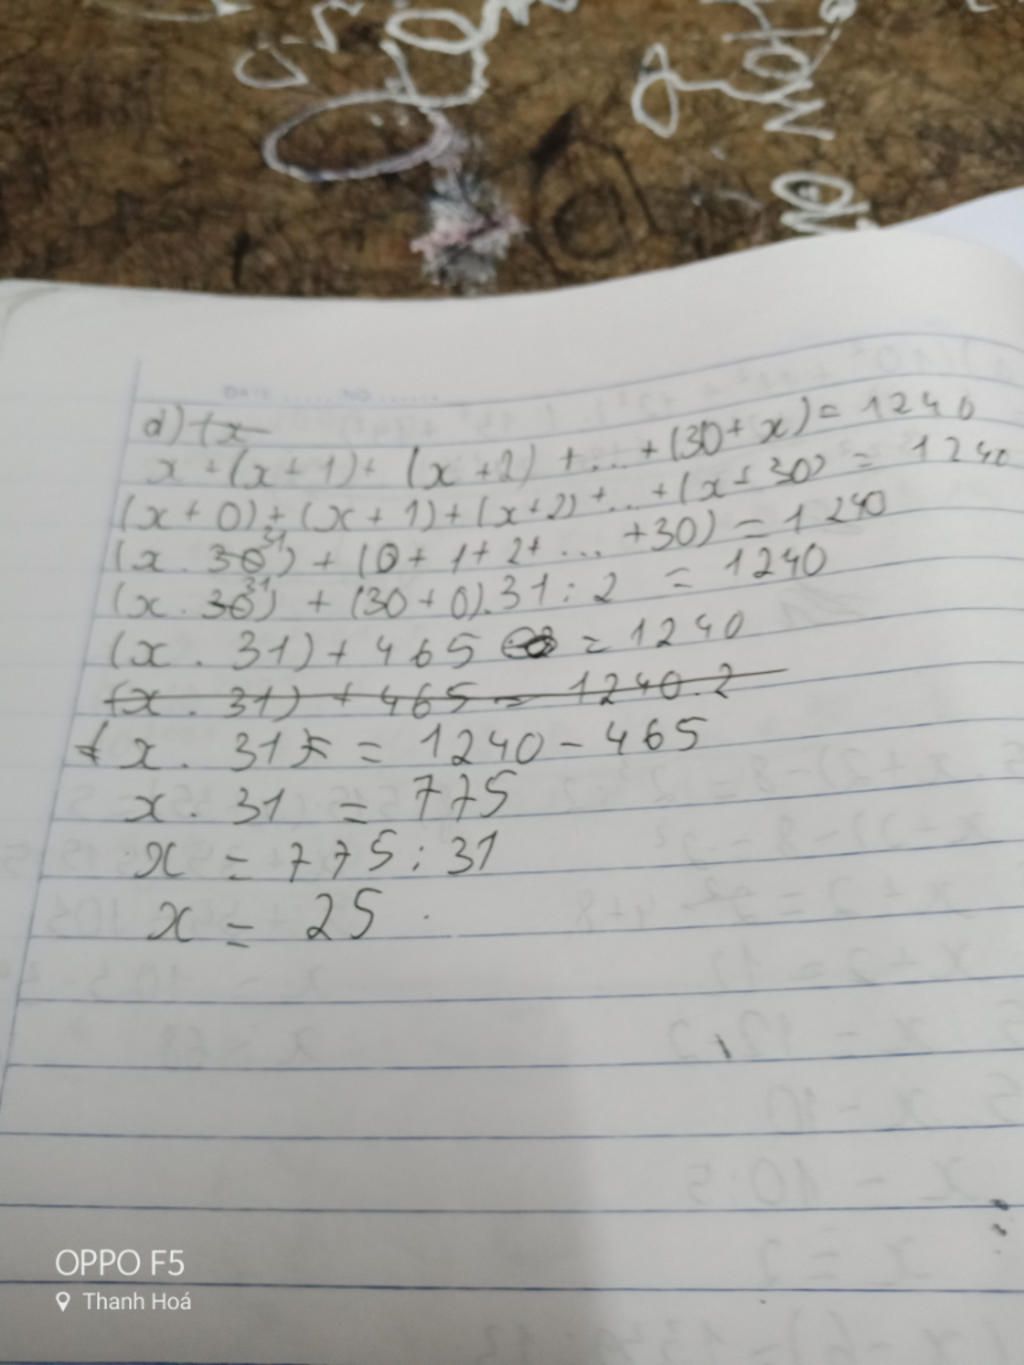 d) (x
x + (x + 1) + (x + 2) + ... + (30 + x) = 1240
(x + 0) + (x + 1) + (x + 2) + ... + (x + 30) = 1240
(x . 30 31) + (0 + 1 + 2 + ... + 30) = 1240
(x . 30 31) + (30 + 0) . 31 : 2 = 1240
(x . 31) + 465 = 1240
(x . 31) + 465 = 1240 . 2
x . 31 = 1240 - 465
x . 31 = 775
x = 775 : 31
x = 25
OPPO F5
Thanh Hoá